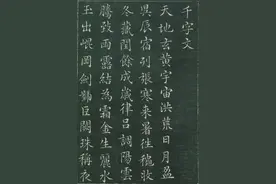 千字文
天地玄黃宇宙洪荒日月盈
昃辰宿列張寒來暑往穐收
冬藏閏餘成歲律呂調陽雲
騰致雨露結為霜金生麗水
玉出崐岡劍號巨闕珠稱夜